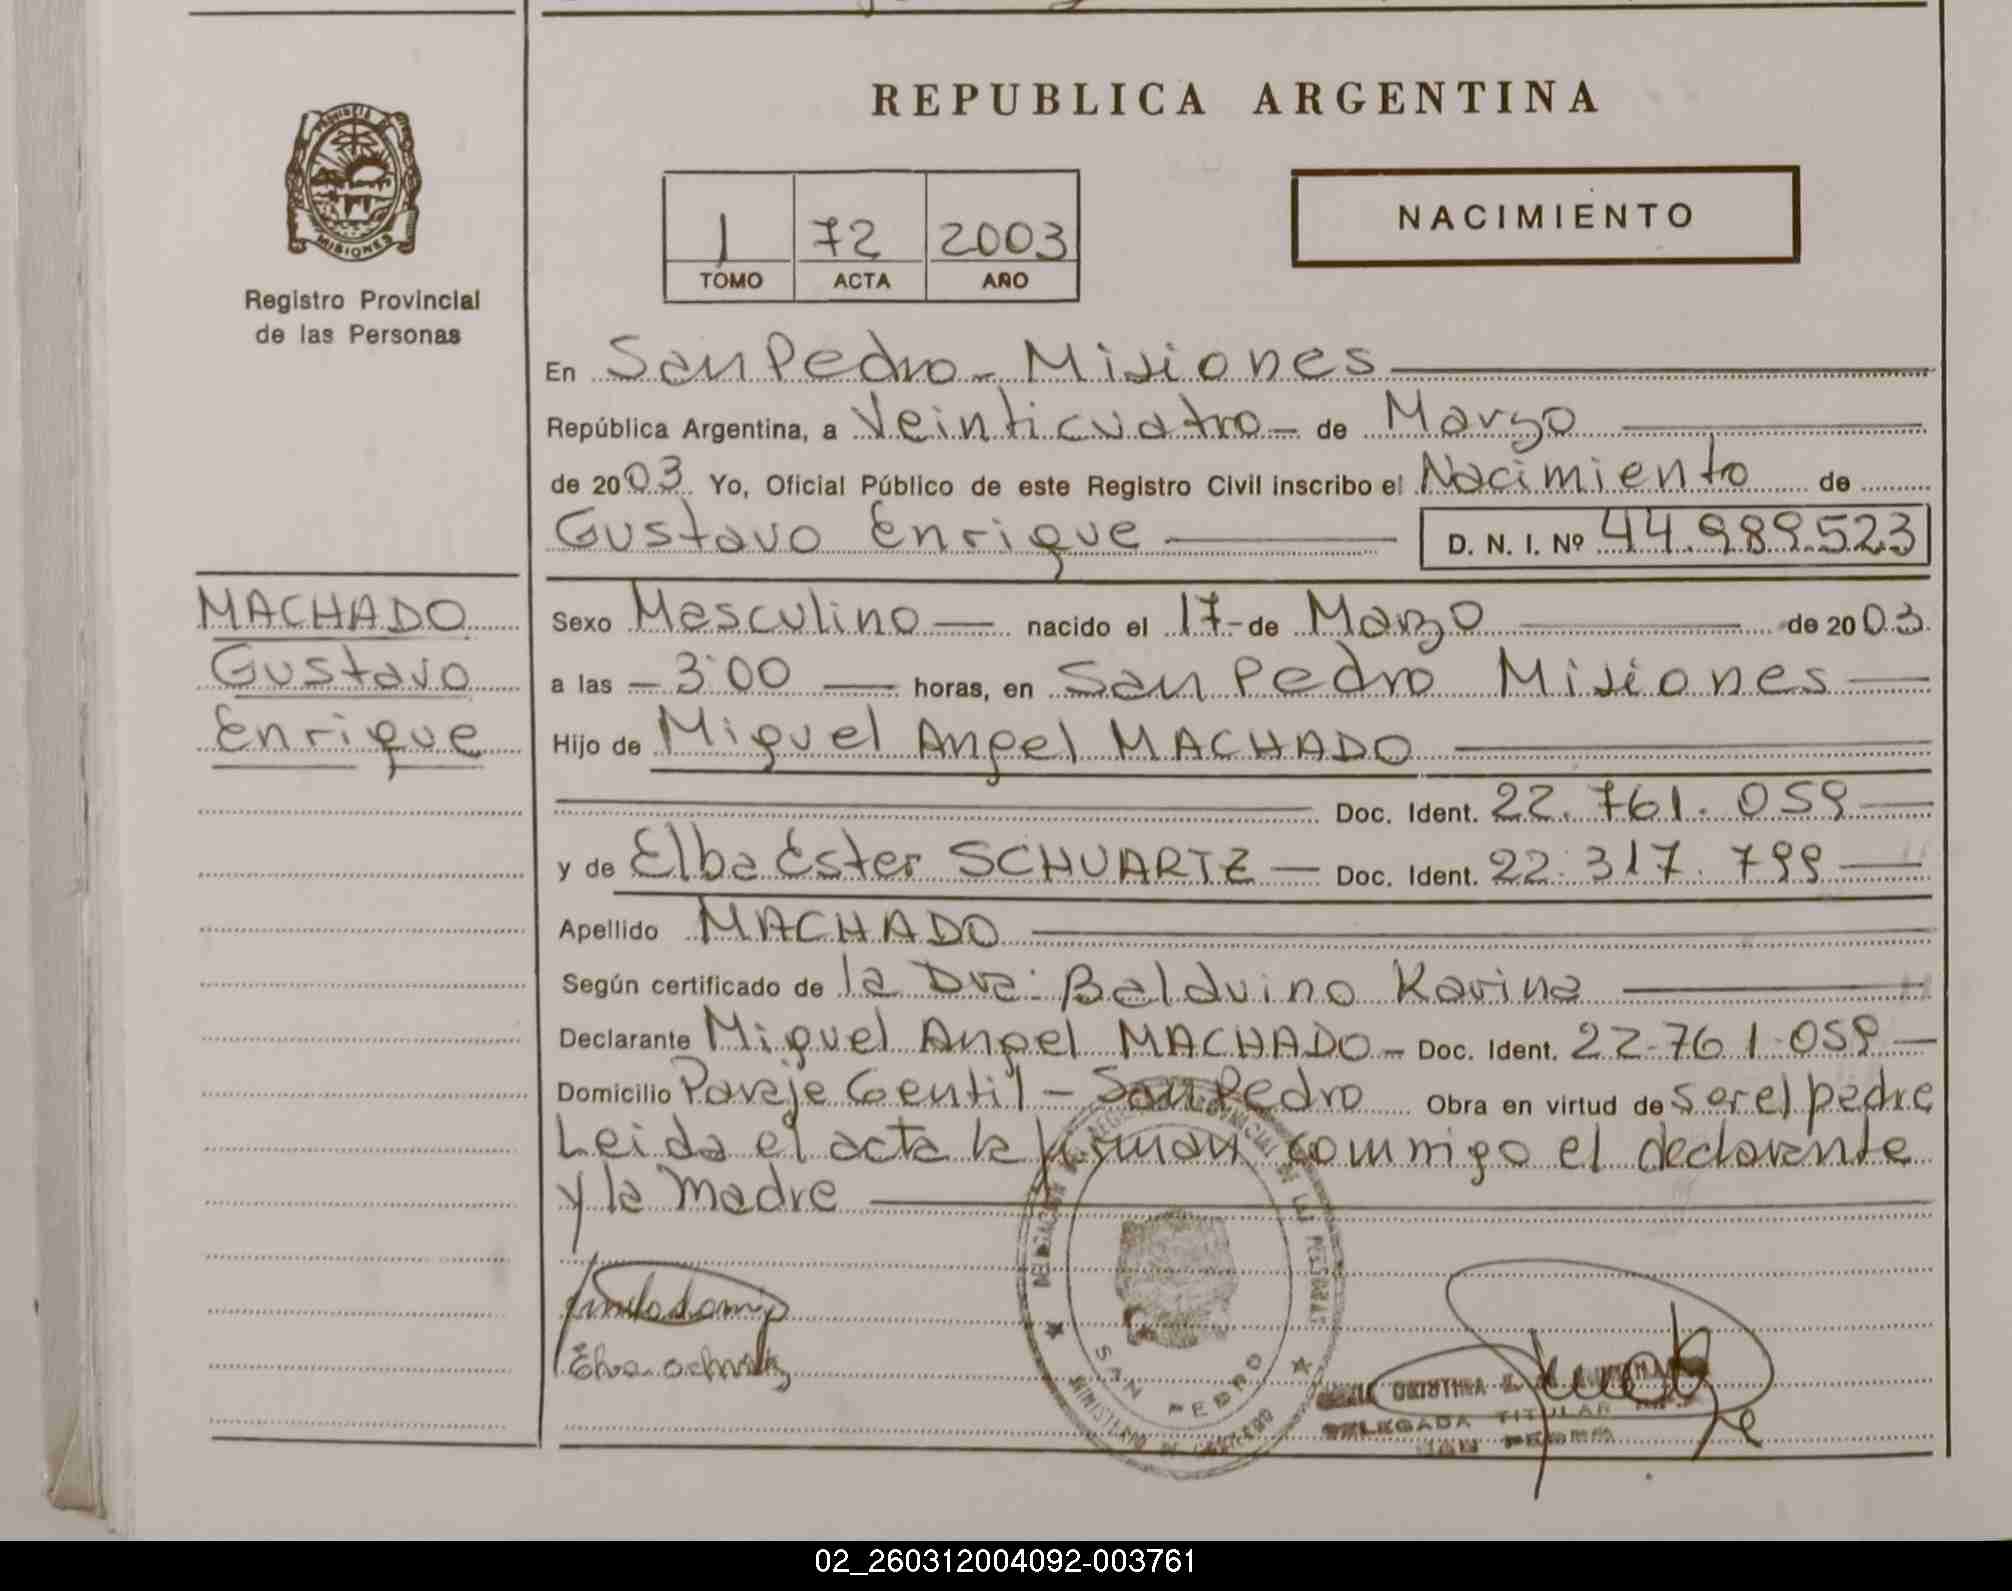 REPUBLICA ARGENTINA
PROVINCIA DE
MISIONES
Registro Provincial
de las Personas
1 72 2003
TOMO ACTA AÑO
NACIMIENTO
En San Pedro - Misiones
República Argentina, a Veinticuatro - de Marzo
de 2003 Yo, Oficial Público de este Registro Civil inscribo el Nacimiento de
Gustavo Enrique D. N. I. Nº 44.989.523
MACHADO
Gustavo
Enrique
Sexo Masculino nacido el 17 - de Marzo de 2003
a las - 3:00 horas, en San Pedro Misiones
Hijo de Miguel Angel MACHADO
Doc. Ident. 22.761.059
y de Elba Ester SCHUARTZ - Doc. Ident. 22.317.799
Apellido MACHADO
Según certificado de la Dra: Balduino Karina
Declarante Miguel Angel MACHADO - Doc. Ident. 22.761.059
Domicilio Paraje Gentil - San Pedro Obra en virtud de ser el padre
Leida el acta la firman conmigo el declarante
y la madre
DELEGACION REGISTRO PROVINCIAL DE LAS PERSONAS
SAN PEDRO
MINISTERIO DE GOBIERNO
DELEGADA TITULAR
SAN PEDRO
02_260312004092-003761